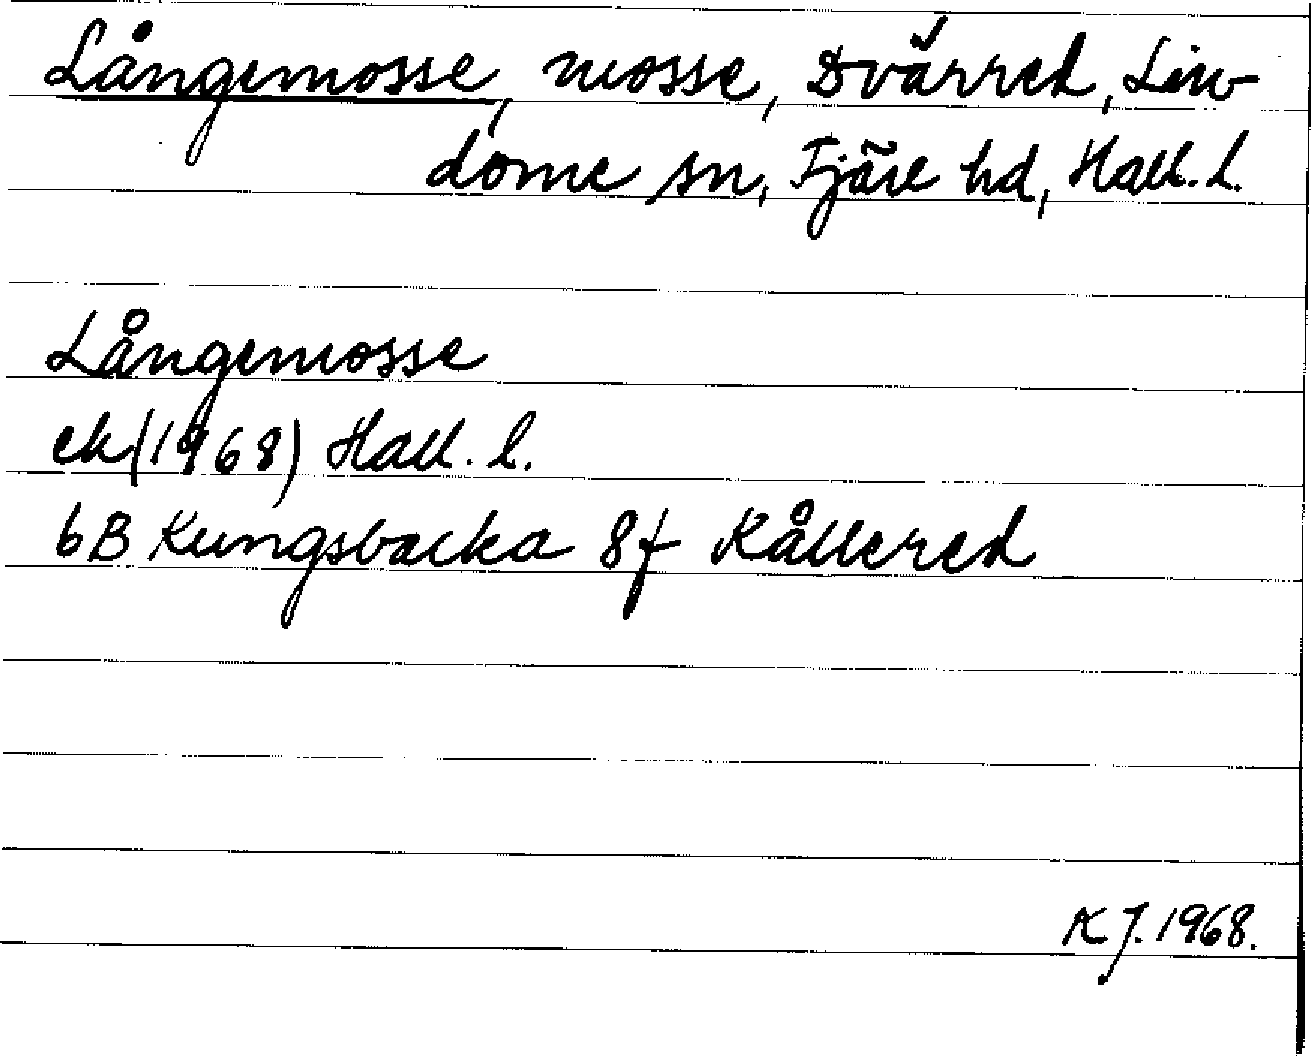 Långemosse, mosse, Dvärred, Lin-
dome sn, Fjäre hd, Hall. l.
Långemosse
ek (1968) Hall. l.
6B Kungsbacka 8f Kållered
K J. 1968.